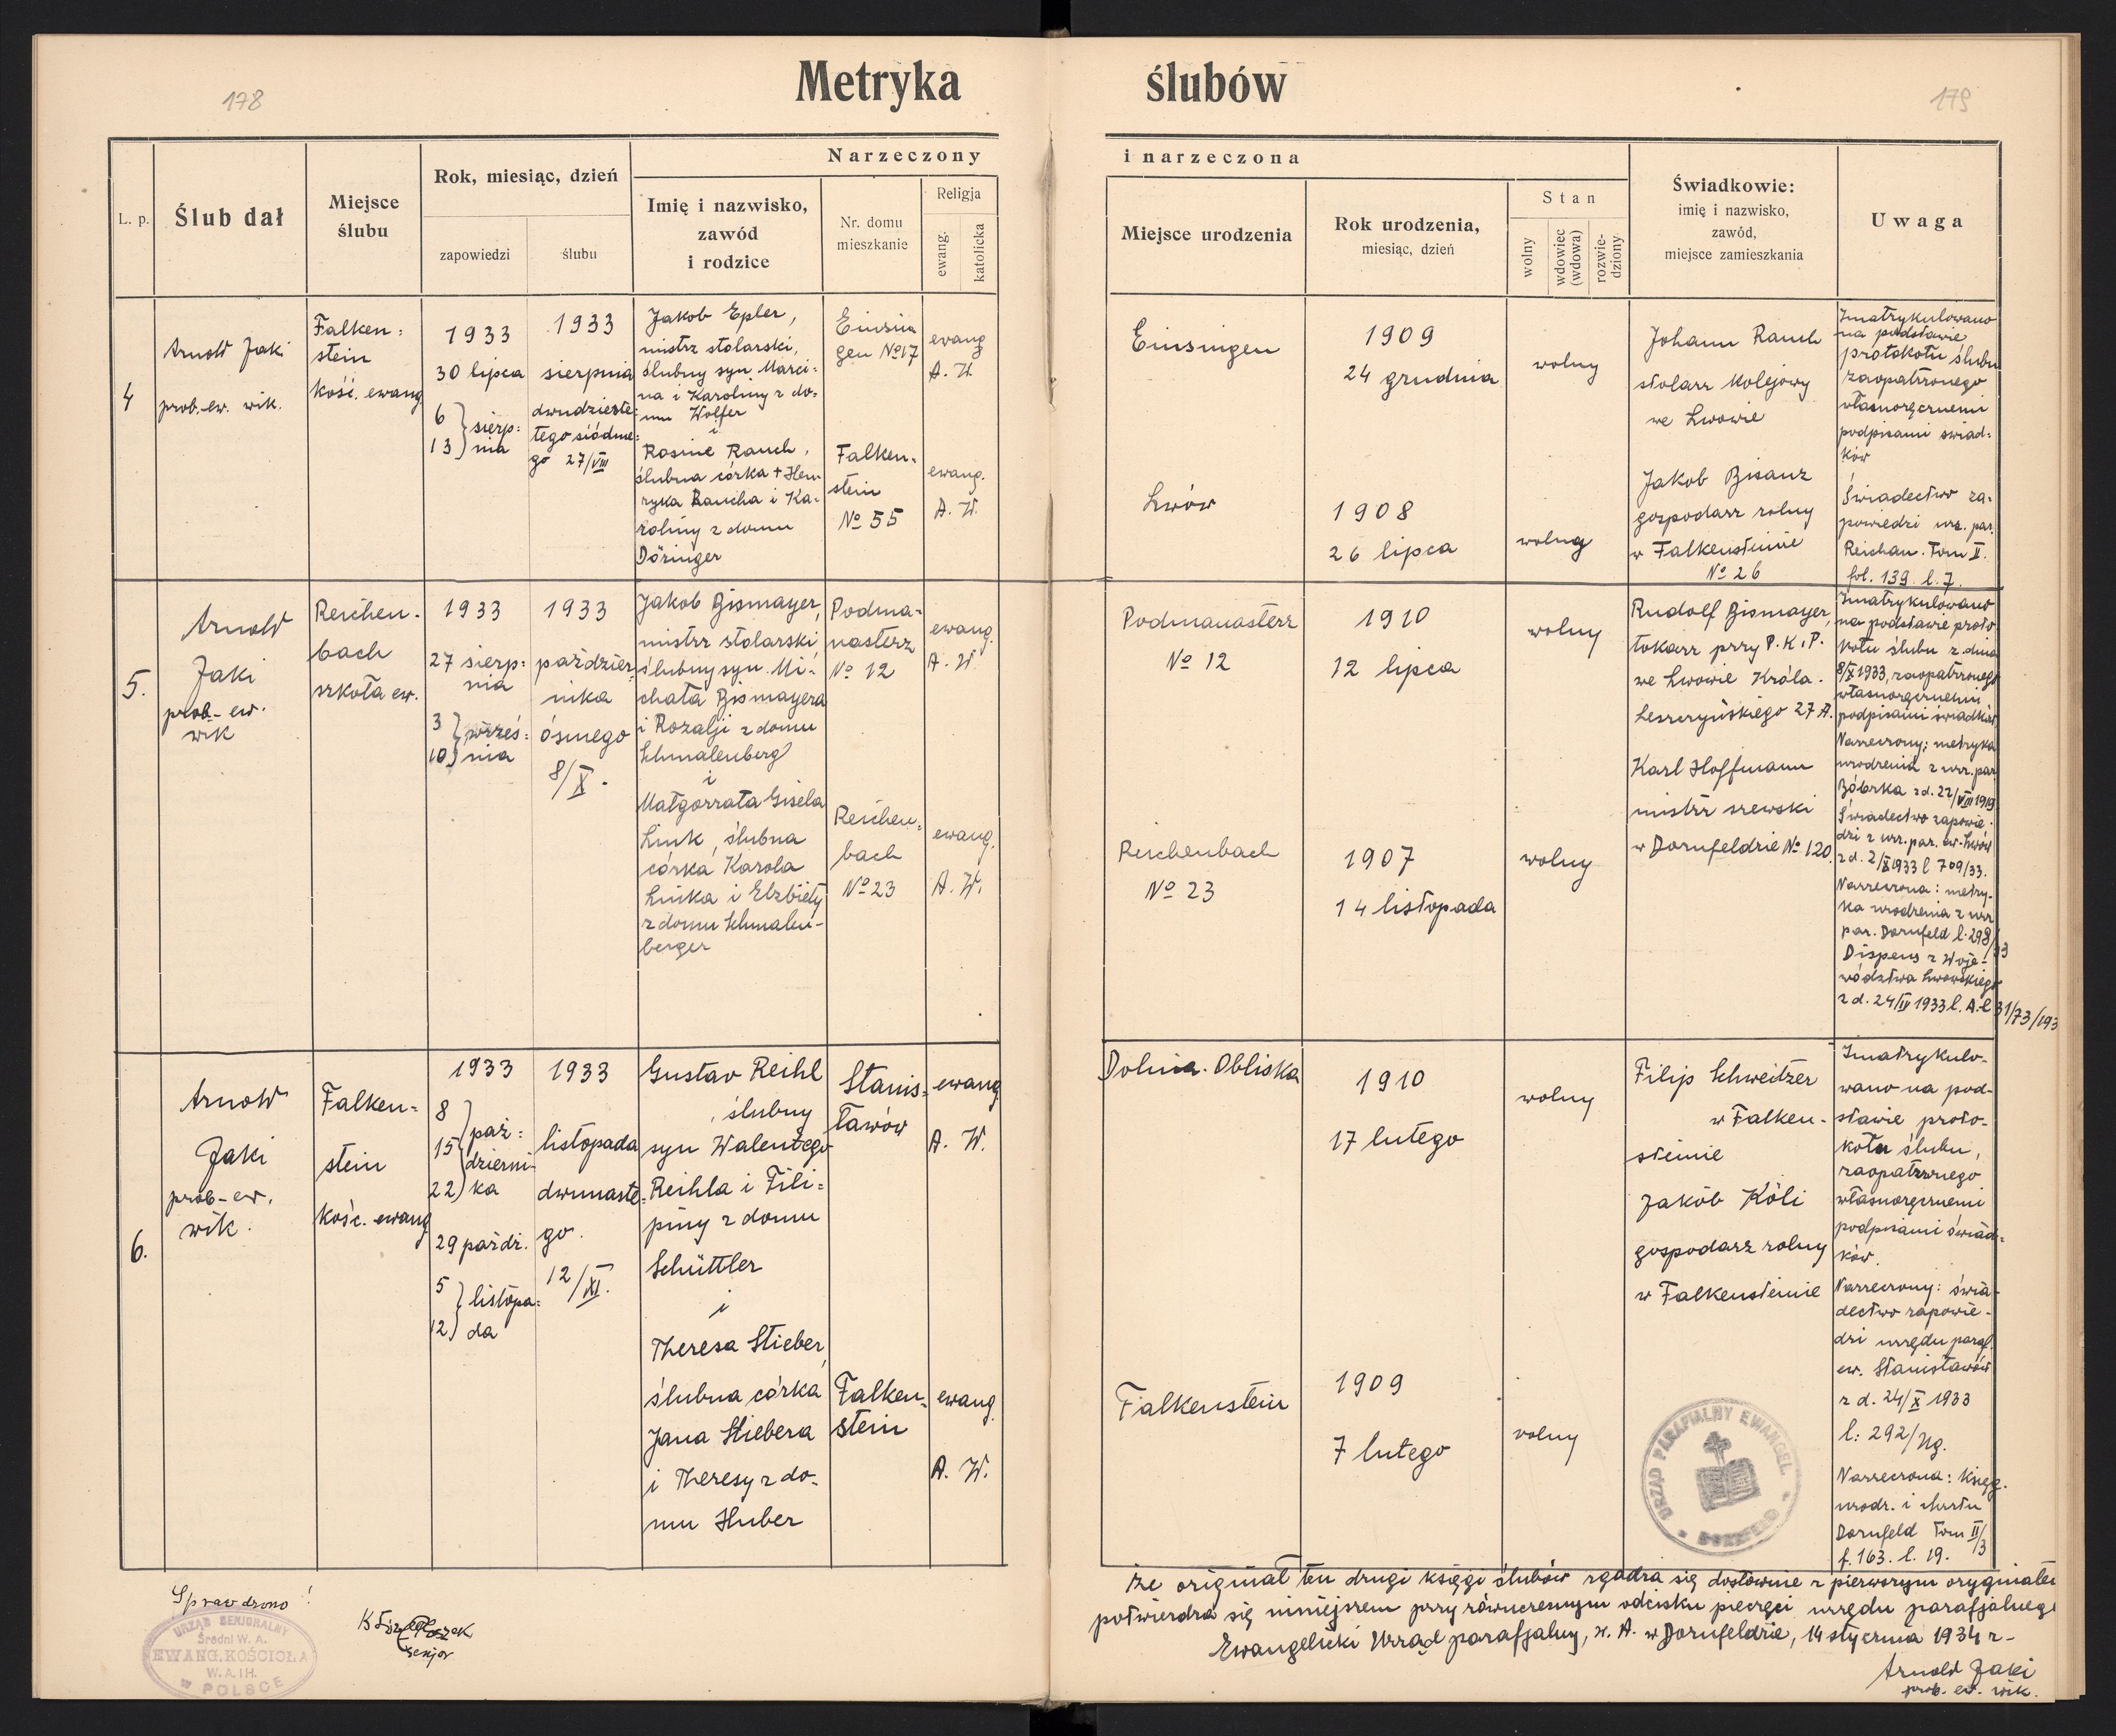 178
Metryka ślubów
179
L. p.
Ślub dał
Miejsce
ślubu
Rok, miesiąc, dzień
zapowiedzi
ślubu
Narzeczony
Imię i nazwisko,
zawód
i rodzice
Nr. domu
mieszkanie
Religja
ewang.
katolicka
i narzeczona
Miejsce urodzenia
Rok urodzenia,
miesiąc, dzień
Stan
wolny
wdowiec
(wdowa)
rozwie-
dziony
Świadkowie:
imię i nazwisko,
zawód,
miejsce zamieszkania
Uwaga
4
Arnold Jaki
prob. ew. wik.
Falken=
stein
kość. ewang
1933
30 lipca
6
13 } sierp=
nia
1933
sierpnia
dwudzieste=
tego siódme=
go 27/VIII
Jakob Epler,
mistrz stolarski,
ślubny syn Marci=
na i Karoliny z do=
mu Wolfer
i
Rosine Rauch,
ślubna córka + Hen
ryka Raucha i Ka=
roliny z domu
Döringer
Einsin
gen № 17
Falken=
stein
№ 55
evang
A. W.
ewang.
A. W.
Einsingen
Lwów
1909
24 grudnia
1908
26 lipca
wolny
wolny
Johann Rauch
stolarz kolejowy
we Lwowie
Jakob Bisanz
gospodarz rolny
w Falkensteinie
№ 26
Imatrykulowano
na podstawie
protokołu ślubu
zaopatrzonego
własnoręcznemi
podpisami świad=
ków
Świadectwo za=
powiedzi urz. par.
Reichau. Tom II.
fol. 139. l. 7.
5.
Arnold
Jaki
prob-ew.
wik
Reichen-
bach
szkoła ew.
1933
27 sierp=
nia
3
10 } wrześ=
nia
1933
paździer=
nika
ósmego
8/X.
Jakob Bismayer,
mistrz stolarski,
ślubny syn Mi=
chała Bismayera
i Rozalji z domu
Schmalenberg
i
Małgorzata Gisela
Link, ślubna
córka Karola
Linka i Elżbiety
z domu Schmalen-
berger
Podma=
nasterz
№ 12
Reichen=
bach
№ 23
ewang.
A. W.
ewang.
A. W.
Podmanasterz
№ 12
Reichenbach
№ 23
1910
12 lipca
1907
14 listopada
wolny
wolny
Rudolf Bismayer,
tokarz przy P.K.P.
we Lwowie Króla
Leszczyńskiego 27 A.
Karl Hoffmann
mistrz szewski
w Dornfeldzie № 120
Imatrykulowano
na podstawie proto
kołu ślubu z dnia
8/X 1933, zaopatrzonego
własnoręcznemi
podpisami świadków
Narzeczony: metryka
urodzenia z urz. par
Bóbrka z d. 22/VIII 1919
Świadectwo zapowie
dzi z urz. par. ew. Lwów
z d. 2/X 1933 l 709/33.
Narzeczona: metry-
ka urodzenia z urz
par. Dornfeld l. 298/33
Dispens z Woje-
wództwa Lwowskiego
z d. 24/IV 1933 l. A.C 31/73/193
6.
Arnold
Jaki
prob-ew.
wik.
Falken-
stein
kośc. ewang
1933
8
15
22 } paź=
dzierni-
ka
29 paźdz.
5
12 } listopa=
da
1933
listopada
dwunaste=
go.
12/XI.
Gustav Reihl
, ślubny
syn Walentego
Reihla i Fili=
piny z domu
Schüttler
i
Theresa Stieber,
ślubna córka
Jana Stiebera
i Theresy z do-
mu Huber
Stanis=
ławów
Falken=
stein
ewang
A. W.
ewang.
A. W.
Dolina. Obliska
Falkenstein
1910
17 lutego
1909
7 lutego
wolny
wolny
Filip Schweitzer
w Falken-
steinie
Jakób Köli
gospodarz rolny
w Falkensteinie
Imatrykulo-
wano na pod-
stawie proto-
kołu ślubu,
zaopatrznego
własnoręcznemi
podpisami świad=
ków.
Narzeczony: świa-
dectwo zapowie-
dzi urzędu paraf.
ew. Stanisławów
z d. 24/X 1933
l: 292/
Narzeczona: Księg.
urodz. i chrztu
Dornfeld Tom II/3
f. 163. l. 19.
URZĄD PARAFIALNY EWANGEL.
DORNFELD
Że orginał ten drugi księgi ślubów zgadza się dosłownie z pierwszym oryginałem
potwierdza się niniejszem przy równoczesnym odcisku pieczęci urzędu parafjalnego
Ewangelicki Urząd parafjalny, w. A. w Dornfeldzie, 14 stycznia 1934 r-
Arnold Jaki
prob. ew. wik.
Sprawdzono!
senjor
URZĄD SENJORALNY
Średni W. A.
EWANG. KOŚCIOŁA
W. A. I H.
w POLSCE